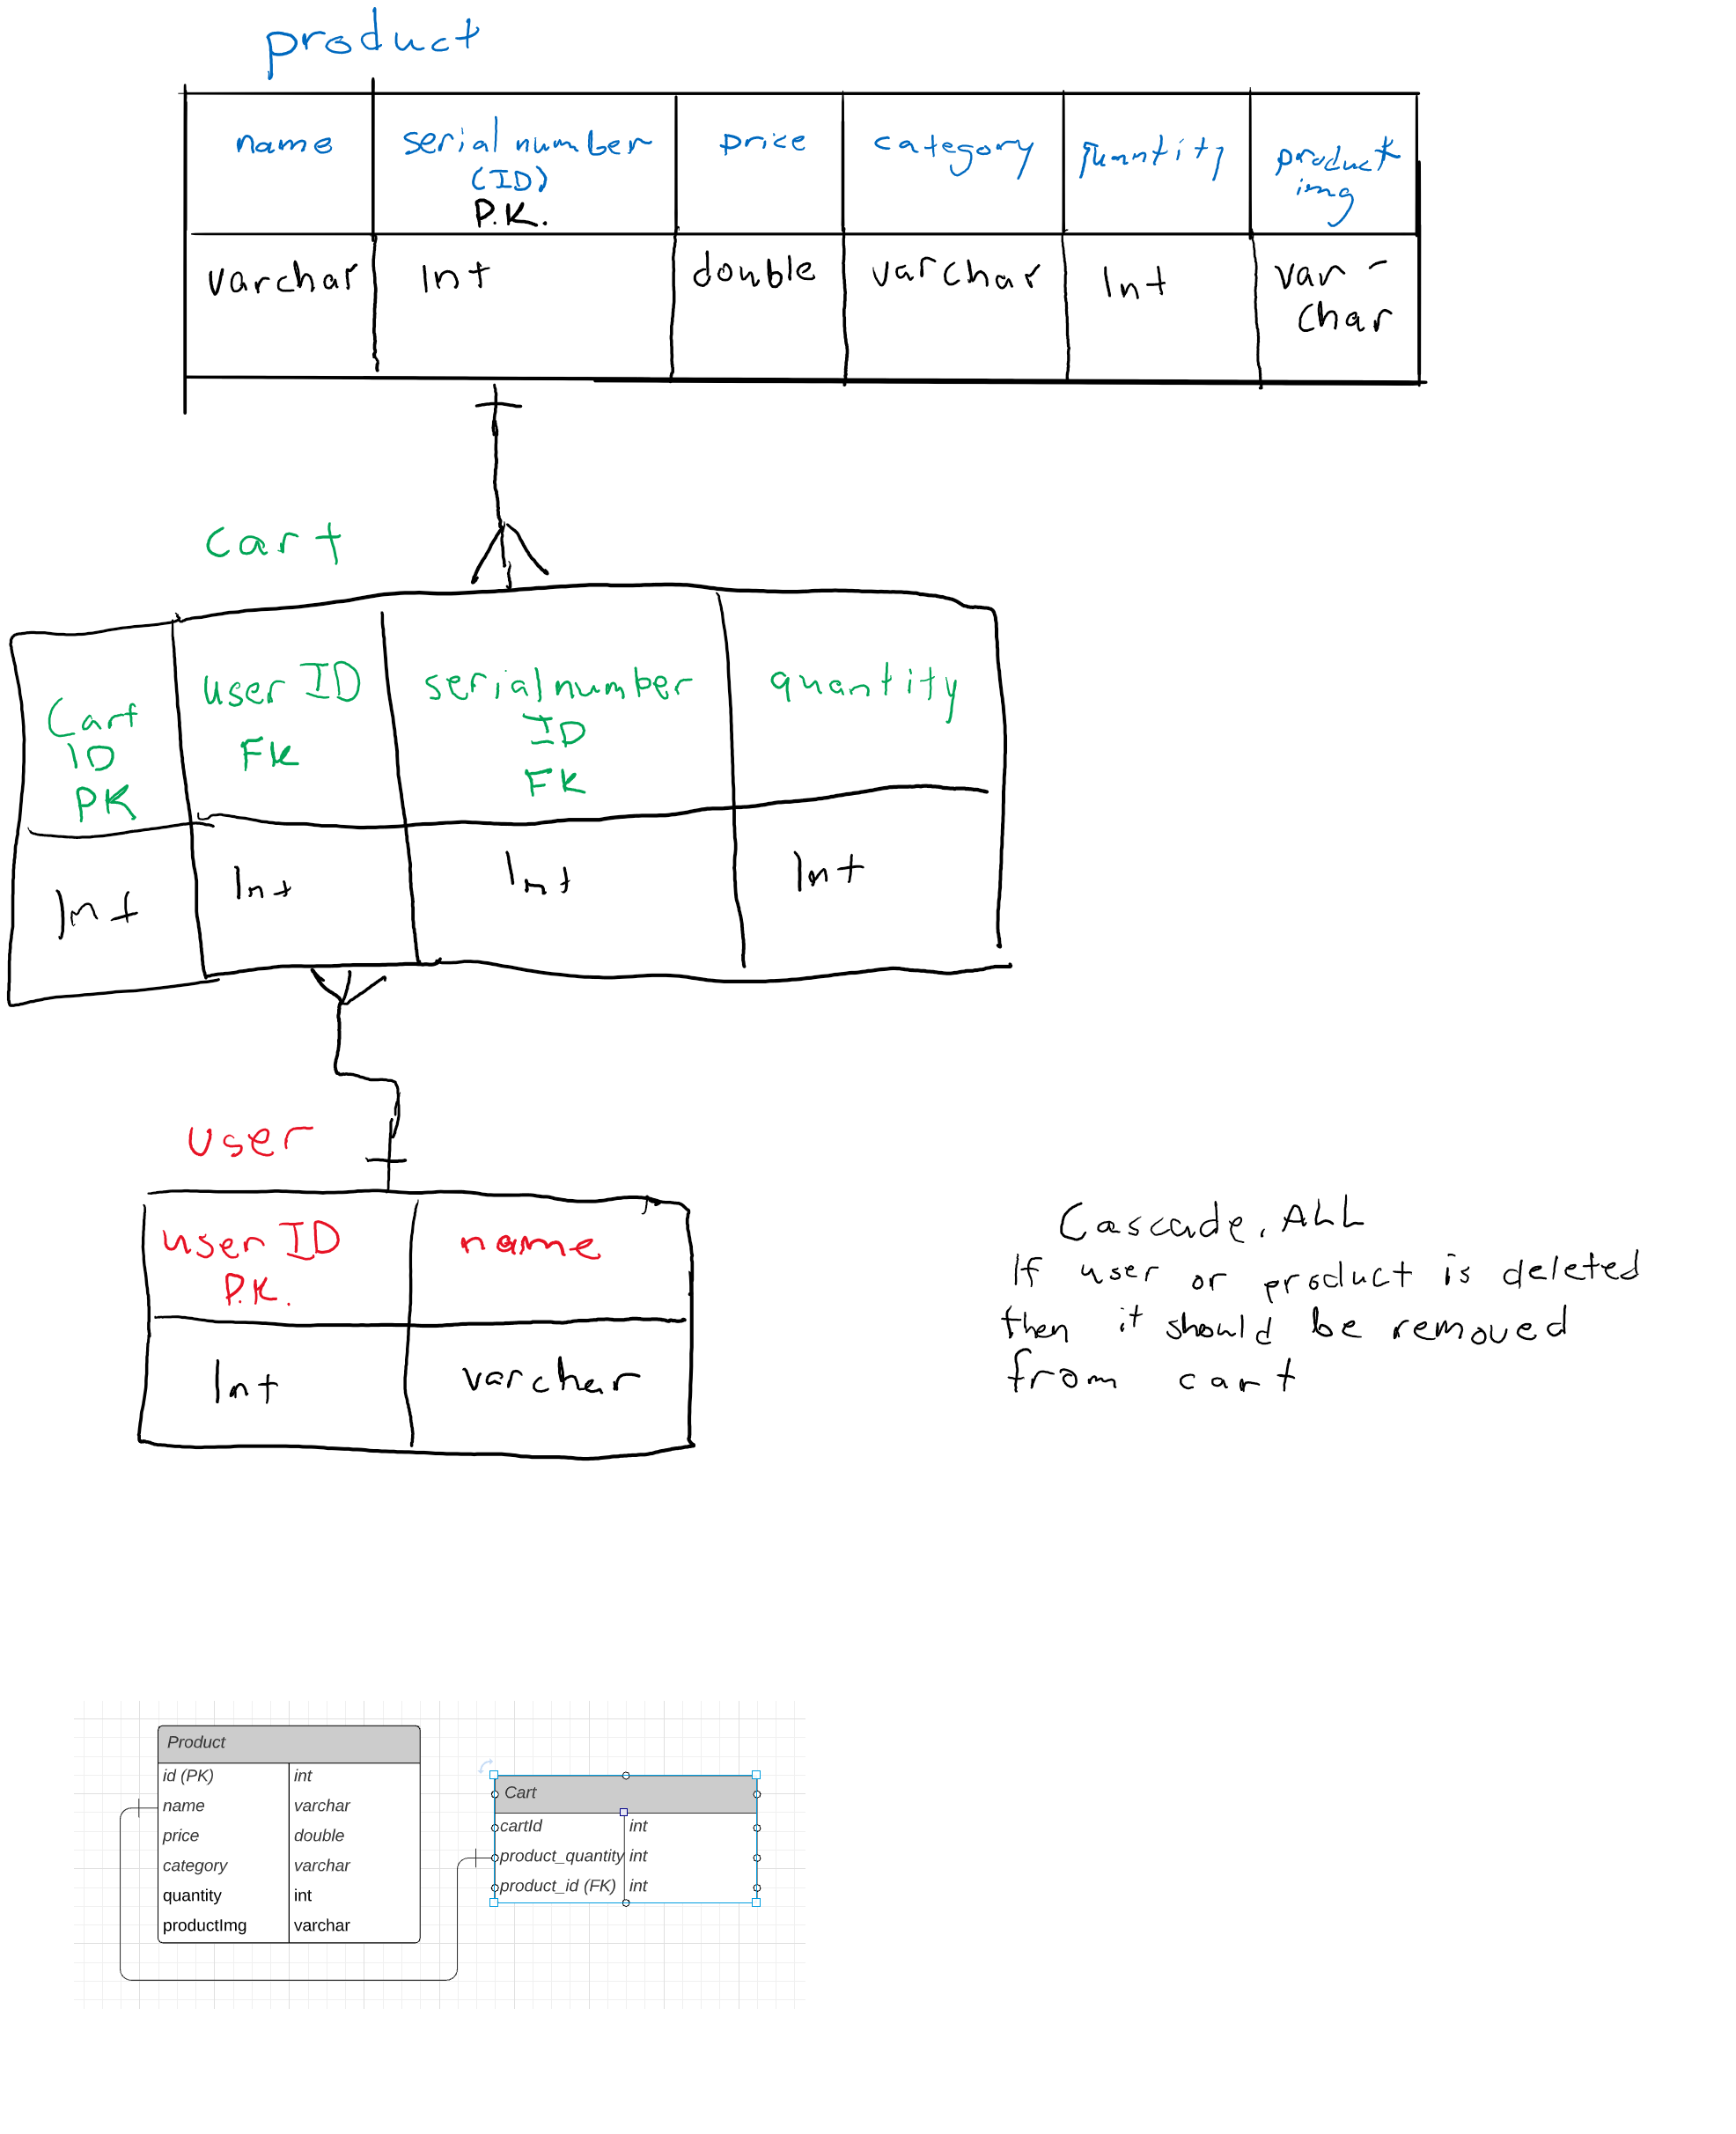 product
name
serial number
(ID)
P.K.
price
category
quantity
product
img
varchar
Int
double
varchar
Int
var-
char
cart
Cart
ID
PK
user ID
FK
serial number
ID
FK
quantity
Int
Int
Int
Int
user
user ID
P.K.
name
Int
varchar
Cascade.ALL
If user or product is deleted
then it should be removed
from cart
Product
id (PK) int
name varchar
price double
category varchar
quantity int
productImg varchar
Cart
cartId int
product_quantity int
product_id (FK) int